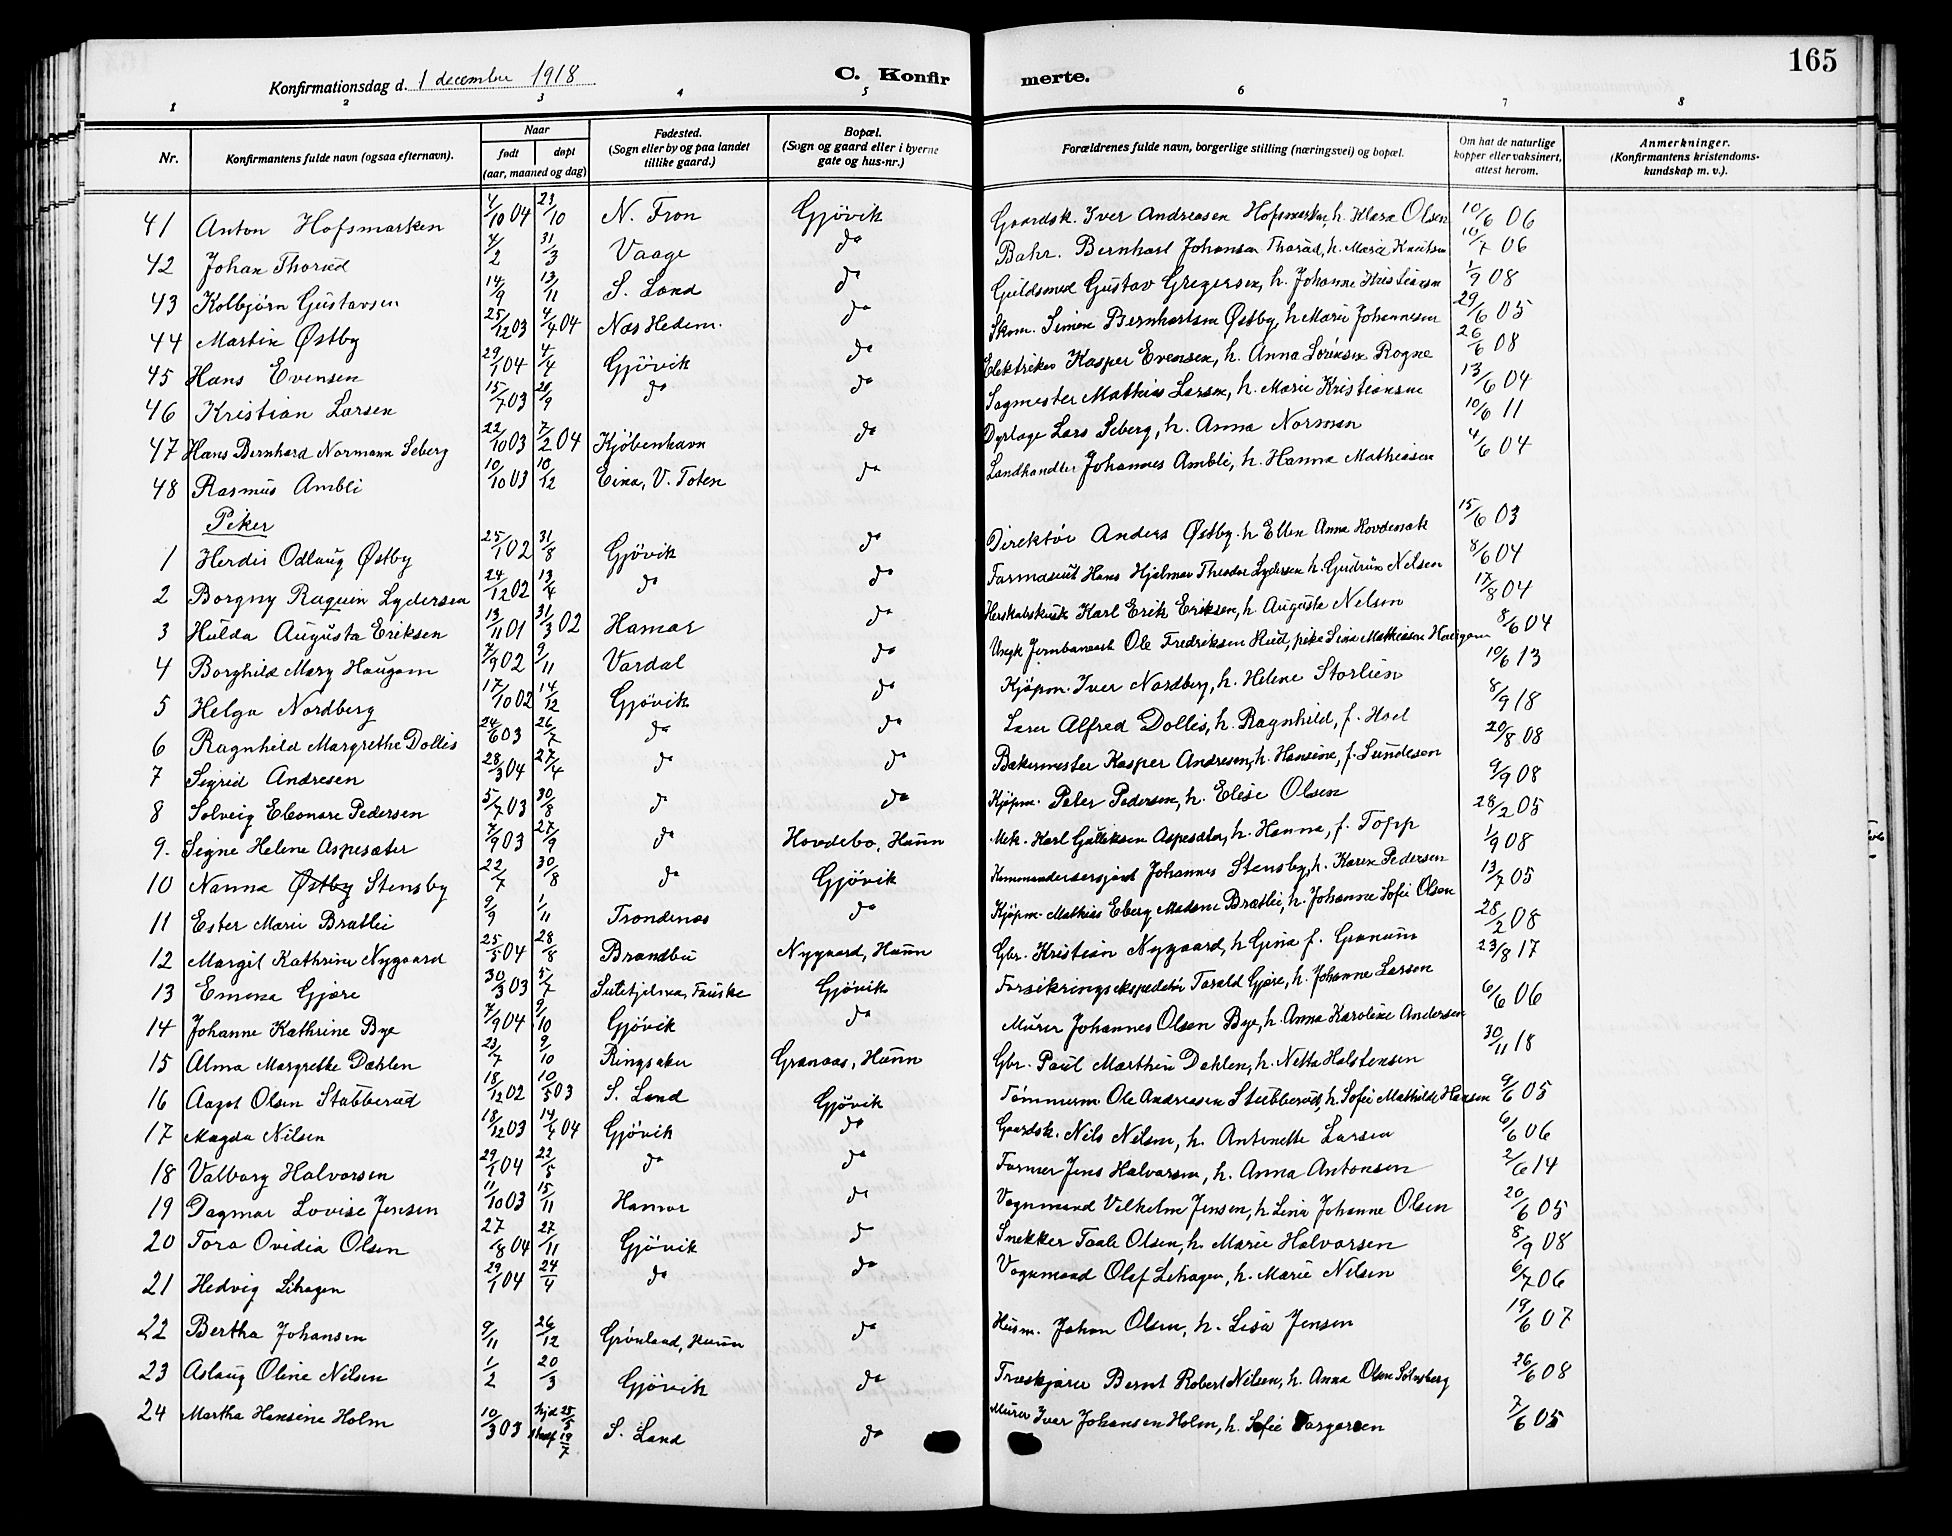 165
Konfirmationsdag d. 1 december 1918 C. Konfirmerte.
1 2 3 4 5 6 7 8
Nr. Konfirmantens fulde navn (ogsaa efternavn). Naar født døpt (aar, maaned og dag) Fødested. (Sogn eller by og paa landet tillike gaard.) Bopæl. (Sogn og gaard eller i byerne gate og hus-nr.) Forældrenes fulde navn, borgerlige stilling (næringsvei) og bopæl. Om hat de naturlige kopper eller vaksinert, attest herom. Anmerkninger. (Konfirmantens kristendoms-kundskap m. v.).
41 Anton Hofsmarken 4/10 04 23/10 N. Fron Gjövik Gaardsk. Iver Andreasen Hofsmarken, h. Klara Olsen 10/6 06
42 Johan Thorud 4/2 31/3 Vaage do Bahr. Bernhart Johansen Thorud, h. Marie Knutsen 10/7 06
43 Kolbjörn Gustavsen 14/9 13/11 S. Land do Guldsmed Gustav Gregersen, h. Johanne Kristiansen 1/9 08
44 Martin Østby 25/12 03 4/4 04 Næs Hedem. do Skom. Simen Bernhartsen Østby, h. Marie Johannesen 29/6 05
45 Hans Evensen 29/1 04 4/4 Gjövik do Elektriker Kasper Evensen, h. Anna Sörensen Rogne 26/6 08
46 Kristian Larsen 15/7 03 20/9 do do Sagmester Mathias Larsen, h. Marie Kristiansen 13/6 04
47 Hans Bernhard Normann Seberg 22/10 03 7/2 04 Kjöbenhavn do Dyrlæge Lars Seberg, h. Anna Norman 10/6 11
48 Rasmus Ambli 10/10 03 10/12 Eina, V. Toten do Landhandler Johannes Ambli, h. Hanna Mathiasen 4/6 04
Piker
1 Herdis Odlaug Østby 25/1 02 31/8 Gjövik do Direktör Anders Østby h Ellen Anna Hovdenak 15/6 03
2 Borgny Raquin Lydersen 24/12 02 13/4 do do Farmaseut Hans Hjalmar Theodor Lydersen h. Gudrun Nelsen 8/6 04
3 Hulda Augusta Eriksen 13/11 01 31/3 02 Hamar do Herskabskusk Karl Erik Eriksen, h Auguste Nelson 17/8 04
4 Borghild Mary Haugom 7/9 02 9/11 Vardal do Ungk Jernbaneass Ole Fredriksen Hud, pike Lina Mathiasen Haugom 8/6 04
5 Helga Nordberg 17/10 02 14/12 Gjövik do Kjöpm. Iver Nordberg, h. Helene Storlien 10/6 13
6 Ragnhild Margrethe Dollis 24/6 03 26/7 do do Lærer Alfred Dollis, h. Ragnhild, f. Hoel 8/9 18
7 Sigrid Andresen 28/3 04 27/4 do do Bakermester Kasper Andresen, h. Hansine, f. Lundesen 20/8 08
8 Solveig Eleonore Pedersen 5/7 03 30/8 do do Kjöpm. Peter Pedersen, h. Elise Olsen 9/9 08
9. Signe Helene Aspesæter 7/9 03 27/9 do Hovdebo, Hunn Mek. Karl Gulliksen Aspesæter, h. Hanna, f. Topp 28/2 05
10 Nanna Østby Stensby 22/7 30/8 do Gjövik Kommandersersjant Johannes Stensby, h. Karen Pedersen 1/9 08
11 Ester Marie Bratlie 9/9 1/11 Trondenæs do Kjöpm. Mathias Eberg Madsene Bratlie, h. Johanne Sofie Olsen 13/7 05
12 Margit Kathrine Nygaard 25/5 04 28/8 Brandbu Nygaard, Hunn Gbr. Kristian Nygaard, h Gina f. Granum 28/2 08
13 Emma Gjære 30/3 03 5/7 Sulitjelma, Fauske Gjövik Forsikringsekspeditör Torald Gjære, h. Johanne Larsen 23/8 17
14 Johanne Kathrine Bye 7/9 04 9/10 Gjövik do Murer Johannes Olsen Bye, h. Anna Karoline Andersen 6/6 06
15 Alma Margrethe Dahlen 23/7 9/10 Ringsaker Granaas, Hunn Gbr. Paul Marthin Dahlen, h. Netta Halstensen 30/11 18
16 Aagot Olsen Stubberud 18/12 02 10/5 03 S. Land Gjövik Tömmerm. Ole Andreasen Stubberud, h. Sofie Mathilde Hansen 9/6 05
17 Magda Nilsen 18/12 03 14/4 04 Gjövik do Gaardsk. Nils Nilsen, h. Antonette Larsen 6/6 06
18 Valborg Halvorsen 29/1 04 22/5 do do Farmer Jens Halvorsen, h. Anna Antonsen 2/6 14
19 Dagmar Lovise Jensen 11/10 03 15/11 Hamar do Vognmand Vilhelm Jensen, h Lina Johanne Olsen 20/6 05
20 Tora Ovidia Olsen 27/8 04 27/11 Gjövik do Snekker Taale Olsen, h. Marie Halvorsen 8/9 08
21 Hedvig Lihagen 29/1 04 24/4 do do Vognmand Olaf Lihagen, h. Marie Nilsen 6/7 06
22 Bertha Johansen 9/11 26/12 Grönland, Hunn do Husm. Johan Olsen, h. Lisa Jensen 19/6 07
23 Aslaug Oline Nilsen 1/2 20/3 Gjövik do Træskjærer Bernt Robert Nilsen, h. Anna Olsen Solusberg 26/6 08
24 Martha Hansine Holm 10/3 03 hjd 25/3 stadf 19/7 S. Land do Murer Iver Johansen Holm, h. Sofie Torgersen 7/6 05